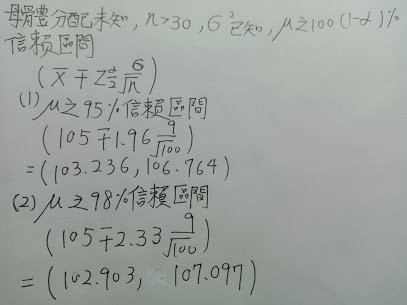 母體體分配未知, n>30, σ²已知, μ之100(1-α)%
信賴區間
(x̄ ∓ Z α/2 σ/√n)
(1) μ之95%信賴區間
(105∓1.96 9/√100)
=(103.236, 106.764)
(2) μ之98%信賴區間
(105∓2.33 9/√100)
= (102.903, 107.097)